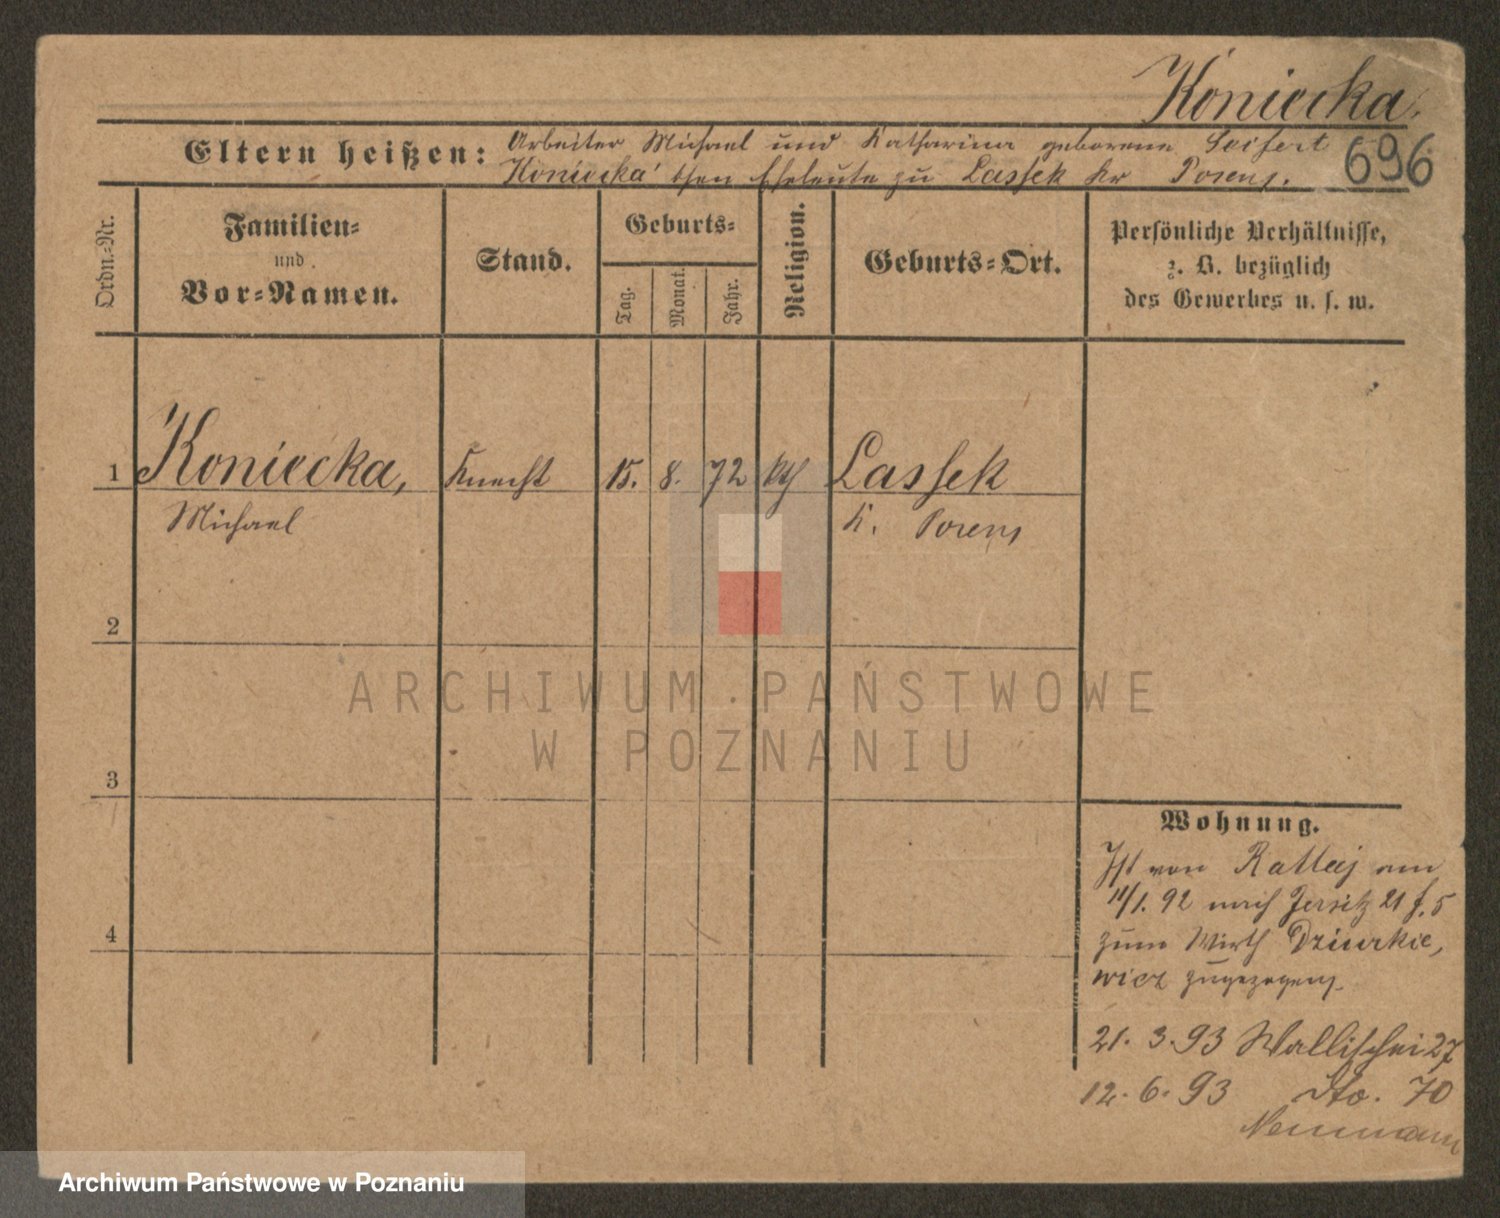 Koniecka,
Eltern heißen: Arbeiter Michael und Katharina geborene Seifert
Koniecka'schen Eheleute zu Lassek Kr Posen.
696
Ordn.-Nr.
Familien-
und
Vor-Namen.
Stand.
Geburts-
Tag.
Monat.
Jahr.
Religion.
Geburts-Ort.
Persönliche Verhältnisse,
z. B. bezüglich
des Gewerbes u. s. w.
1 Koniecka, Knecht 15. 8. 72 kth Lassek
Michael K. Posen
2
3
4
Wohnung.
Ist von Rattaj am
11/1. 92 nach Jersitz 21 f. 5
zum Wirth Dziurkie,
wicz zugezogen.
21. 3. 93 Wallischei 27
12. 6. 93 Dto. 70
Neumann
ARCHIWUM PAŃSTWOWE
W POZNANIU
Archiwum Państwowe w Poznaniu